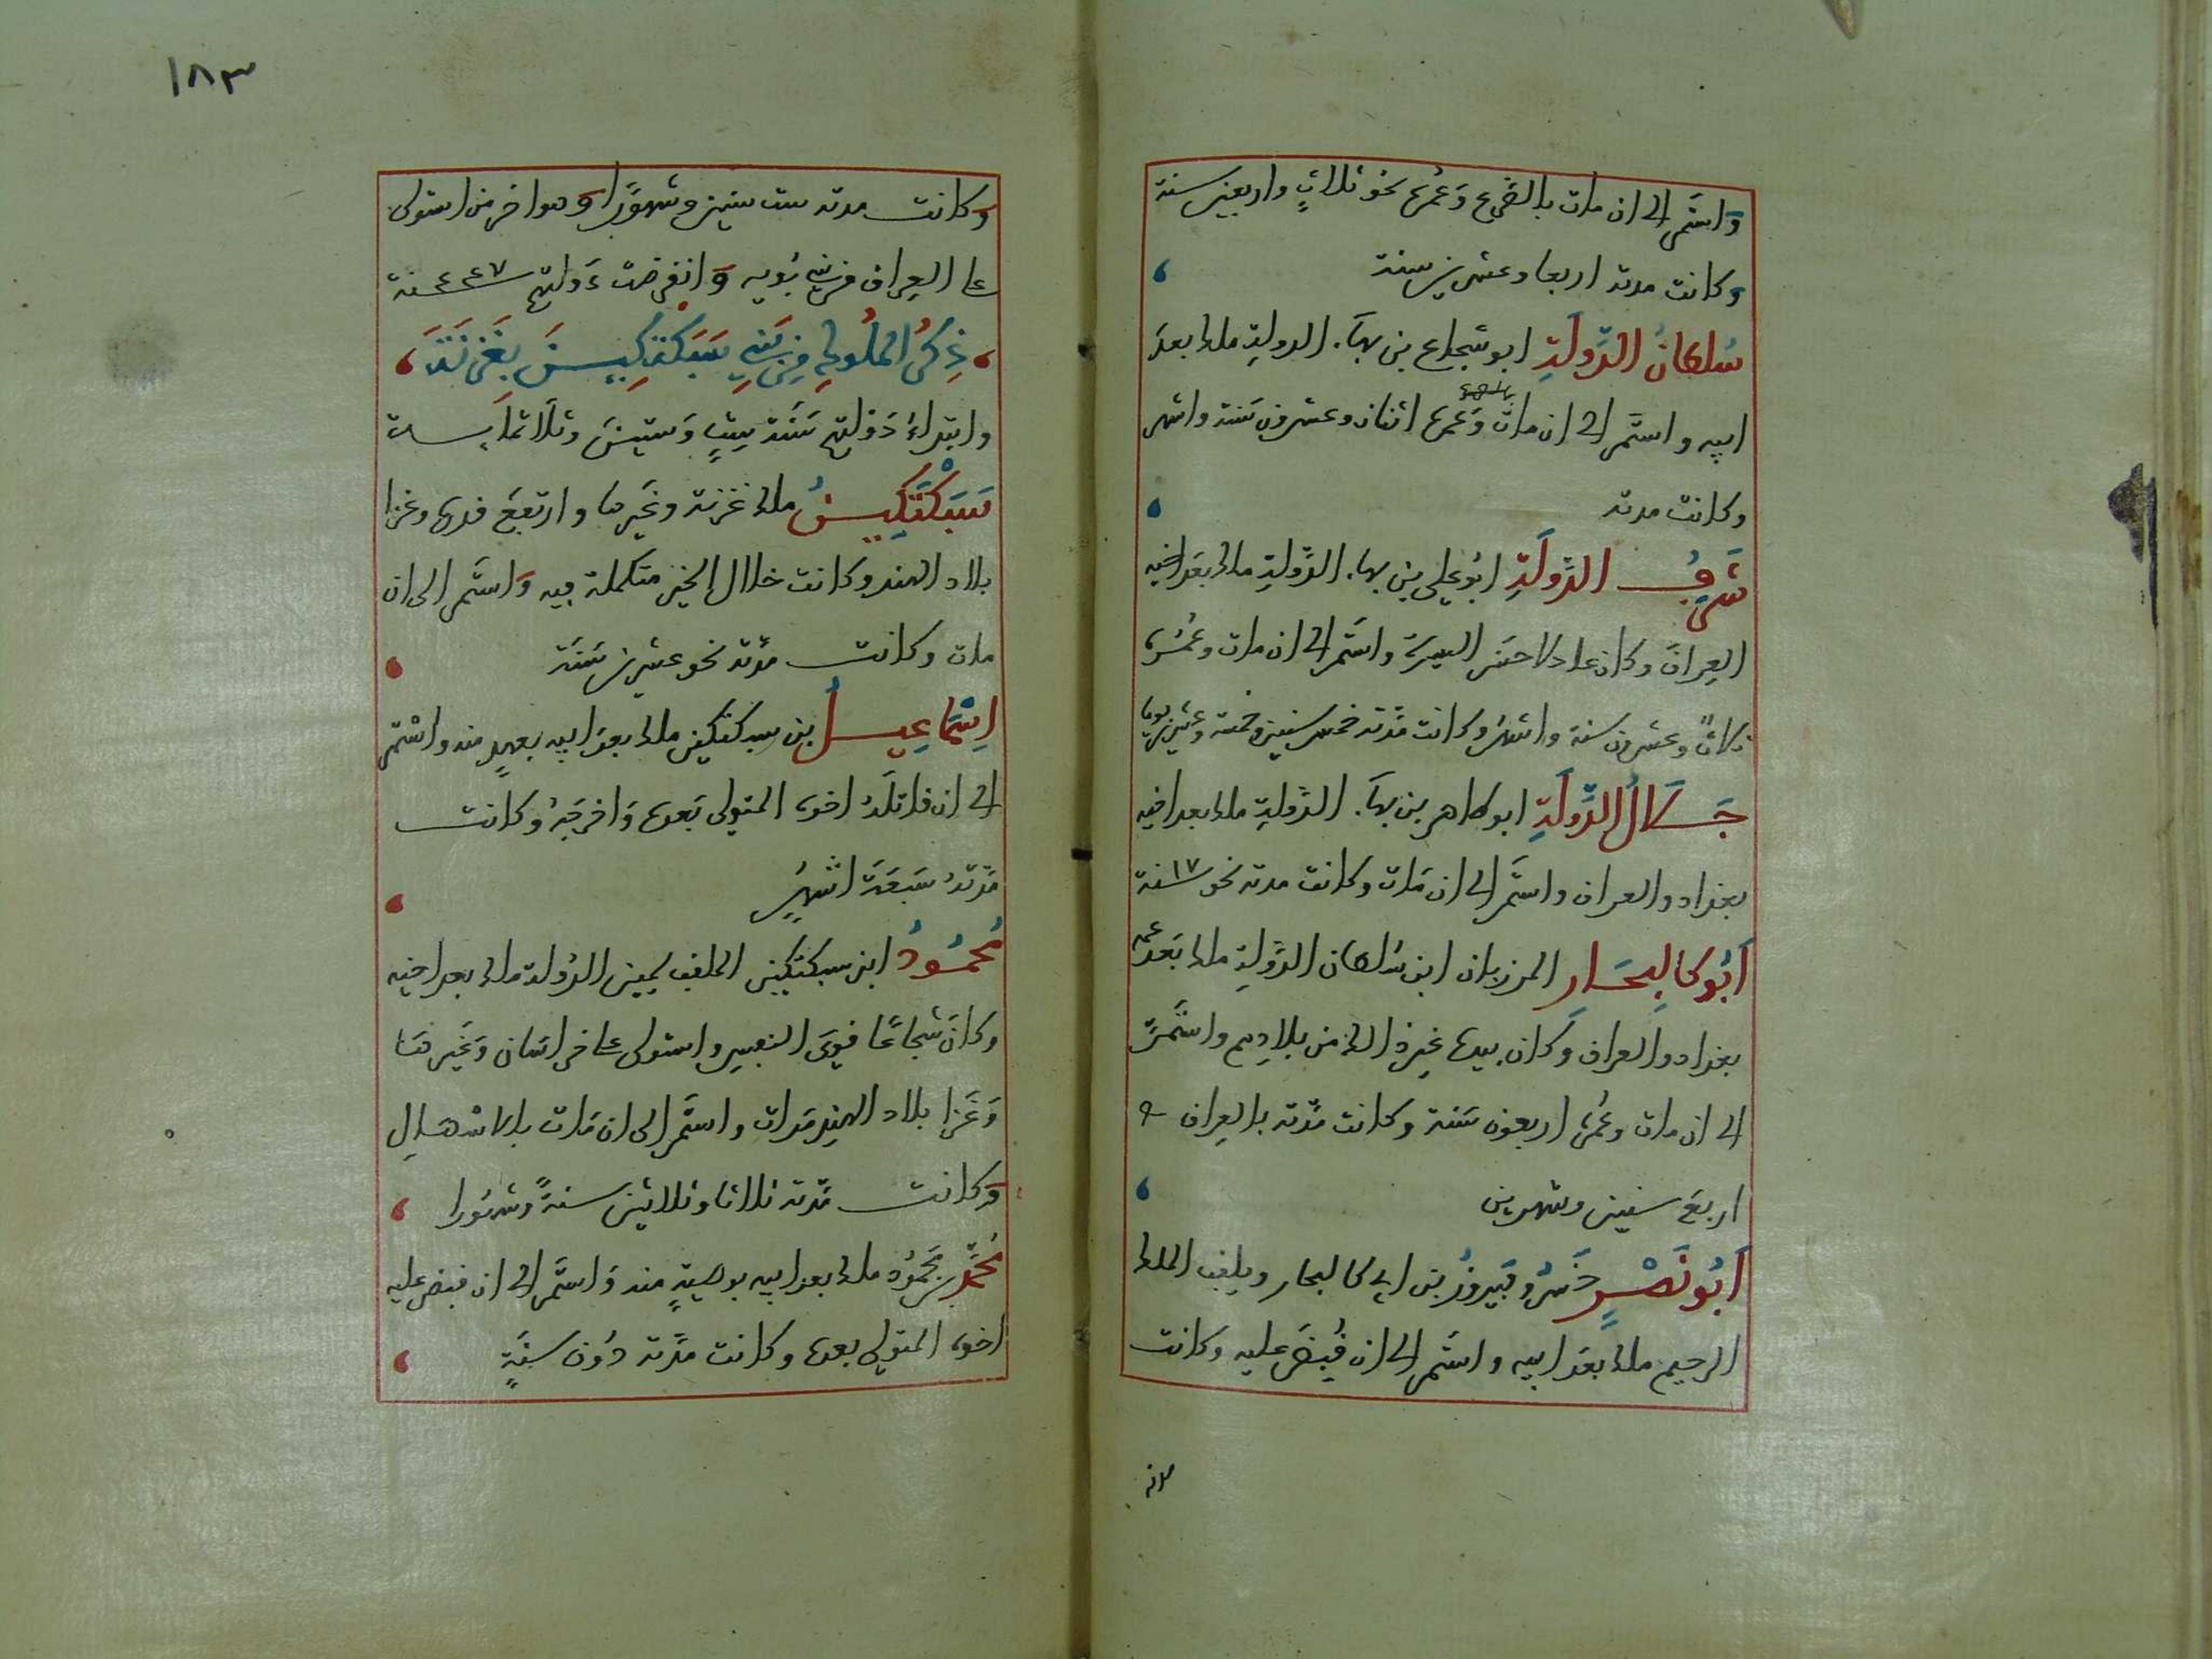 واستمر الى ان مات بالصرع وعمره نحو ثلاثٍ واربعين سنة
وكانت مدته اربعا وعشرين سنة
سُلطانُ الدَّولَةِ ابو شجاع بن بهآء الدولة ملك بعدَ
ابيه واستمَّر الى ان مات وَعمره اثنان وعشرون سَنة واشهر
وكانت مدته
شَرفُ الدَّولَةِ ابُو علي بن بهاء الدَّولةِ ملك بعَد اخيه
العِراقَ وكان عادلا حسَن السيرَة واستَمر الى ان مات وعُمُره
ثلاثٌ وعشرون سنة واشهُر وكانت مدَّته خمس سنين وخمسة وعشرين يوما
جَلَالُ الدَّولَةِ ابو طاهر بن بهآء الدَّولةِ ملك بعد اخيه
بغداد والعراق واستمَّر الى ان مَات وكانت مدته نحو ١٧ سنة
اَبُو كالِيحَارِ المرزبان ابن سُلطان الدَّولةِ ملك بَعَد عمه
بغداد والعراق وكان بيده غير ذالك من بلادِهم واستَمَّر
الى ان مات وعُمره اربعون سَنة وكانت مدَّته بالعِراق
اربعَ سنين وشهرين
اَبُو نَصْرٍ خَسرُو فَيروزُ بن ابي كاليجار ويلقب الملك
الرحيم ملك بعَد ابيه واستَمر الى ان قُبضَ عليه وكانت
مدته
١٨٣
وكانت مدته ست سنين وشهوَرًا وَهو اخر من استولى
على العِراق من بَني بُويه وَانقرضت دَولتهم ٤٤٧ سنة
ذِكرُ المُلُوكِ مِن بَنِي سَبَكتكِينَ بغَزنَةَ
وابتداءُ دَوْلتهم سَنَة سِتٍ وَستينَ وثلاثمايـة
سَبَكْتَكِينُ ملك غزنة وغَيرها وارتفعَ قدره وغزا
بلاد الهند وكانت خلال الخير متكملة فيه وَاستَمر الى ان
مات وكانت مدَّته نحو عشرين سَنَة
اِسْمَاعِيلُ بن سبكتكين ملك بعَد ابيه بعهدٍ منه واسْتمر
الى ان قاتلَهُ اخوه المتولى بَعده وَاخرجَهُ وكانت
مدَّتهُ سَبعَة اشهُرٍ
مُحمُودُ ابن سبكتكين الملقب بيمين الدَّولة ملك بعد اخيه
وكان شجاعًا قوىَ النفسِ واستولى على خراسَان وَغَيرهَا
وَغَزا بلاد الهندِ مَرات واستمَّر الى ان مَات بالاسْهَالِ
وكانت مدَّته ثلاثا وثلاثين سنةً وشهُورا
مُحَمَّد بن محَمُود ملك بعد ابيه بوصيةٍ منه وَاستَمَّر الى ان قبض عليه
اخوه المتولى بعده وكانت مدَّته دُون سنَةٍ